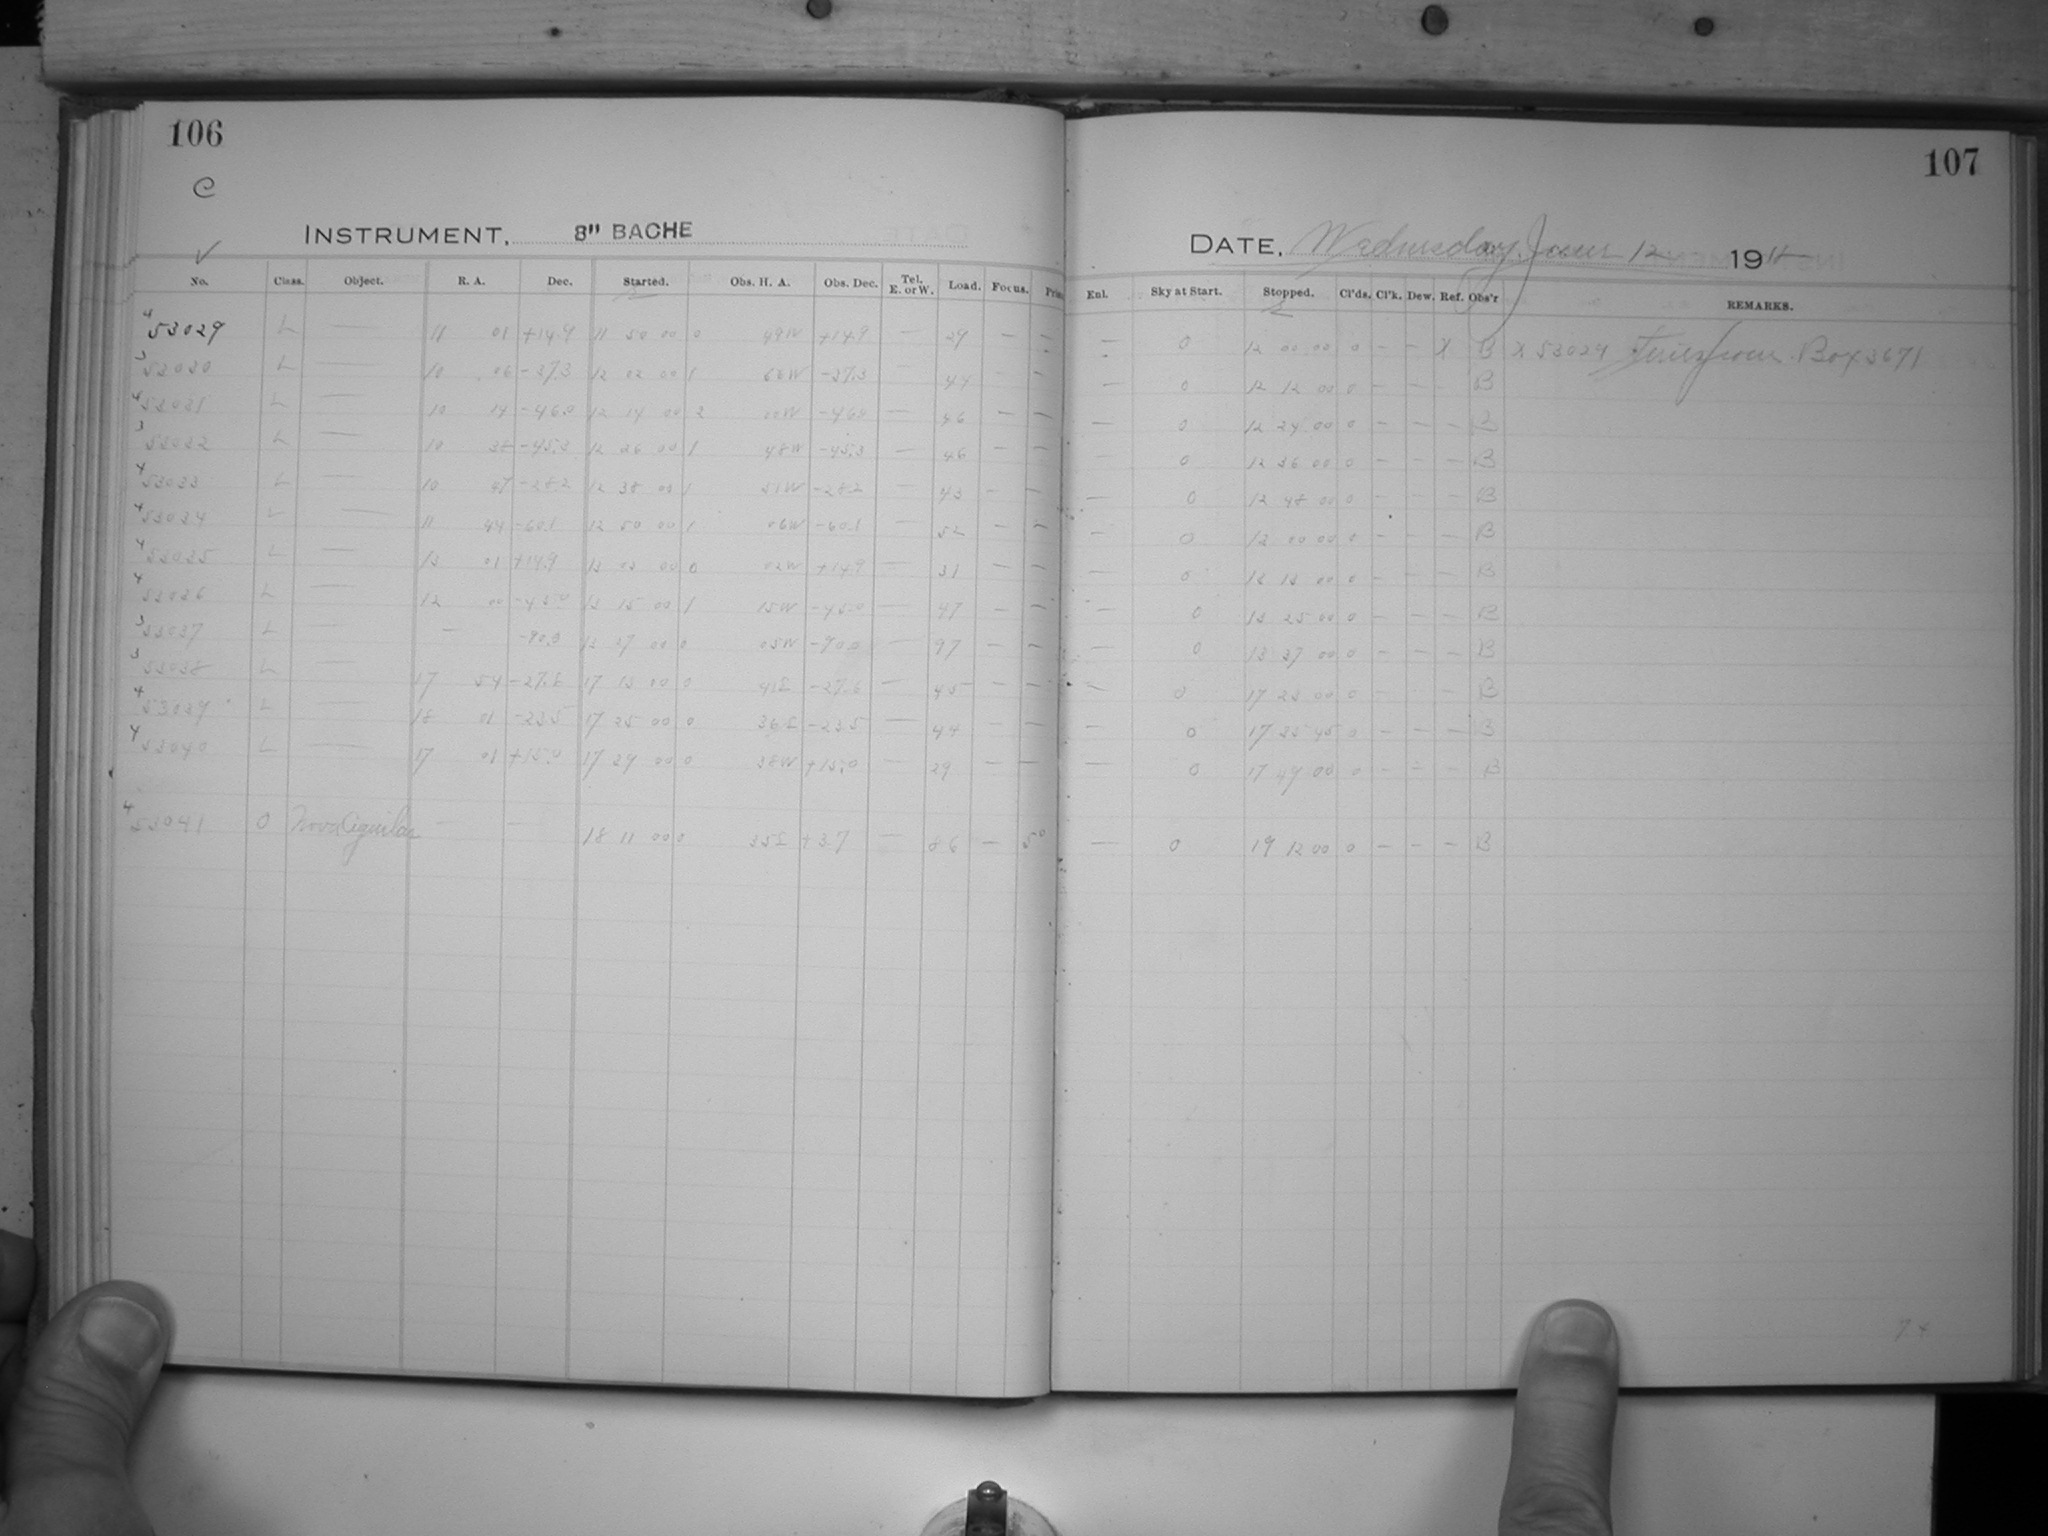 106
107
C
INSTRUMENT, 8" BACHE
DATE, Wednesday, 12 19
No. Class. Object. R. A. Dec. Started. Obs. H. A. Obs. Dec. Tel. E. or W. Load. Focus. Enl. Sky at Start. Stopped. Cl'ds. Cl'k. Dew. Ref. Obs'r REMARKS.
4 53029 L — 11 01 +14.9 11 50 00 0 49W +14.9 — 29 — — — 0 12 00 00 0 — — X B X 53029 Box 3671
3 53030 L — 10 06 -27.3 12 02 00 1 -27.3 — 44 — — — 0 12 12 00 0 — — — B
53031 L — 10 14 -46.0 12 14 00 2 00W -46.0 — 46 — — — 0 12 24 00 0 — — — B
3 53032 L — 10 38 -45.3 12 26 00 1 48W -45.3 — 46 — — 0 12 36 00 0 — — — B
4 53033 L — 10 47 -28.2 12 38 00 1 51W -28.2 — 43 — — — 0 12 48 00 0 — — — B
4 53034 L — 11 44 -60.1 12 50 00 1 06W -60.1 — 52 — — — 0 00 00 0 — — — B
4 53035 L — 13 01 +14.9 13 03 00 0 02W +14.9 — 31 — — — 0 13 13 00 0 — — — B
4 53036 L — 00 -45.0 13 15 00 1 15W -45.0 — 47 — — — 0 13 25 00 0 — — — B
3 53037 L — 27 00 0 05W — 97 — — — 0 13 37 00 0 — — — B
3 53038 L — 17 54 17 13 00 0 41E -27.6 — 45 — — — 0 17 23 00 0 — — — B
4 53039 L — 18 01 -23.5 17 25 00 0 36E -23.5 — 44 — — — 0 17 35 45 0 — — — B
4 53040 L — 17 01 +15.0 17 39 00 0 38W +15.0 — 29 — — — 0 17 49 00 0 — — — B
4 53041 O Nova Aquilae — — 18 11 00 0 35E +3.7 — 86 — — 0 19 12 00 0 — — — B